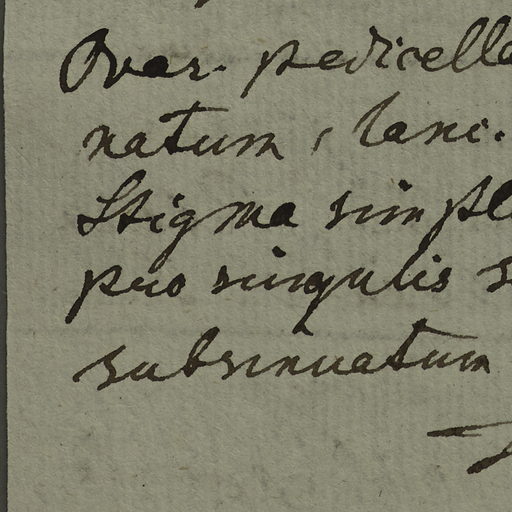 Ovar. pedicella
natum, lanc.
Stigma simple
pro singulis s
subsinuatum